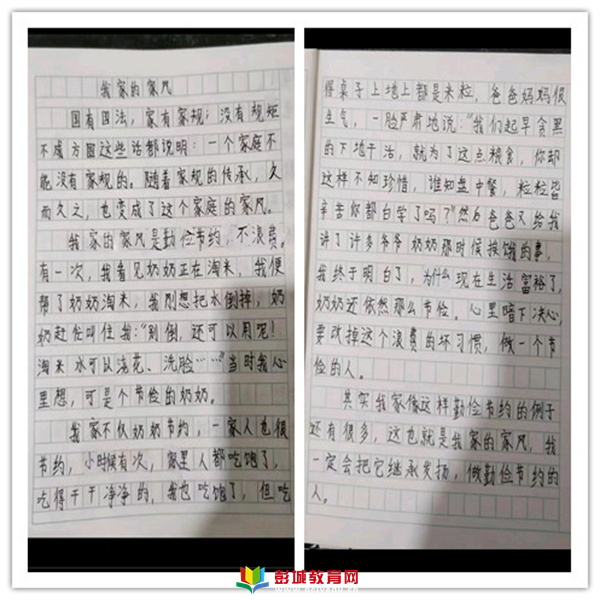 我家的家风
国有国法，家有家规；没有规矩
不成方圆这些话都说明：一个家庭不
能没有家规的。随着家规的传承，久
而久之，也变成了这个家庭的家风。
我家的家风是勤俭节约，不浪费。
有一次，我看见奶奶正在淘米，我便
帮了奶奶淘米，我刚想把水倒掉，奶
奶赶忙叫住我："别倒，还可以用呢！
淘米水可以浇花、洗脸……"当时我心
里想，可是个节俭的奶奶。
我家不仅奶奶节约，一家人也很
节约，小时候有次，家里人都吃饱了，
吃得干干净净的，我也吃饱了，但吃
得桌子上地上都是米粒，爸爸妈妈很
生气，一脸严肃地说："我们起早贪黑
的下地干活，就为了这点粮食，你却
这样不知珍惜，谁知盘中餐，粒粒皆
辛苦你都白学了吗？"然后爸爸又给我
讲了许多爷爷奶奶那时候挨饿的事，
我终于明白了，为什么现在生活富裕了，
奶奶还依然那么节俭。心里暗下决心，
要改掉这个浪费的坏习惯，做一个节
俭的人。
其实我家像这样勤俭节约的例子
还有很多，这也就是我家的家风，我
一定会把它继承发扬，做勤俭节约的
人。
彭城教育网